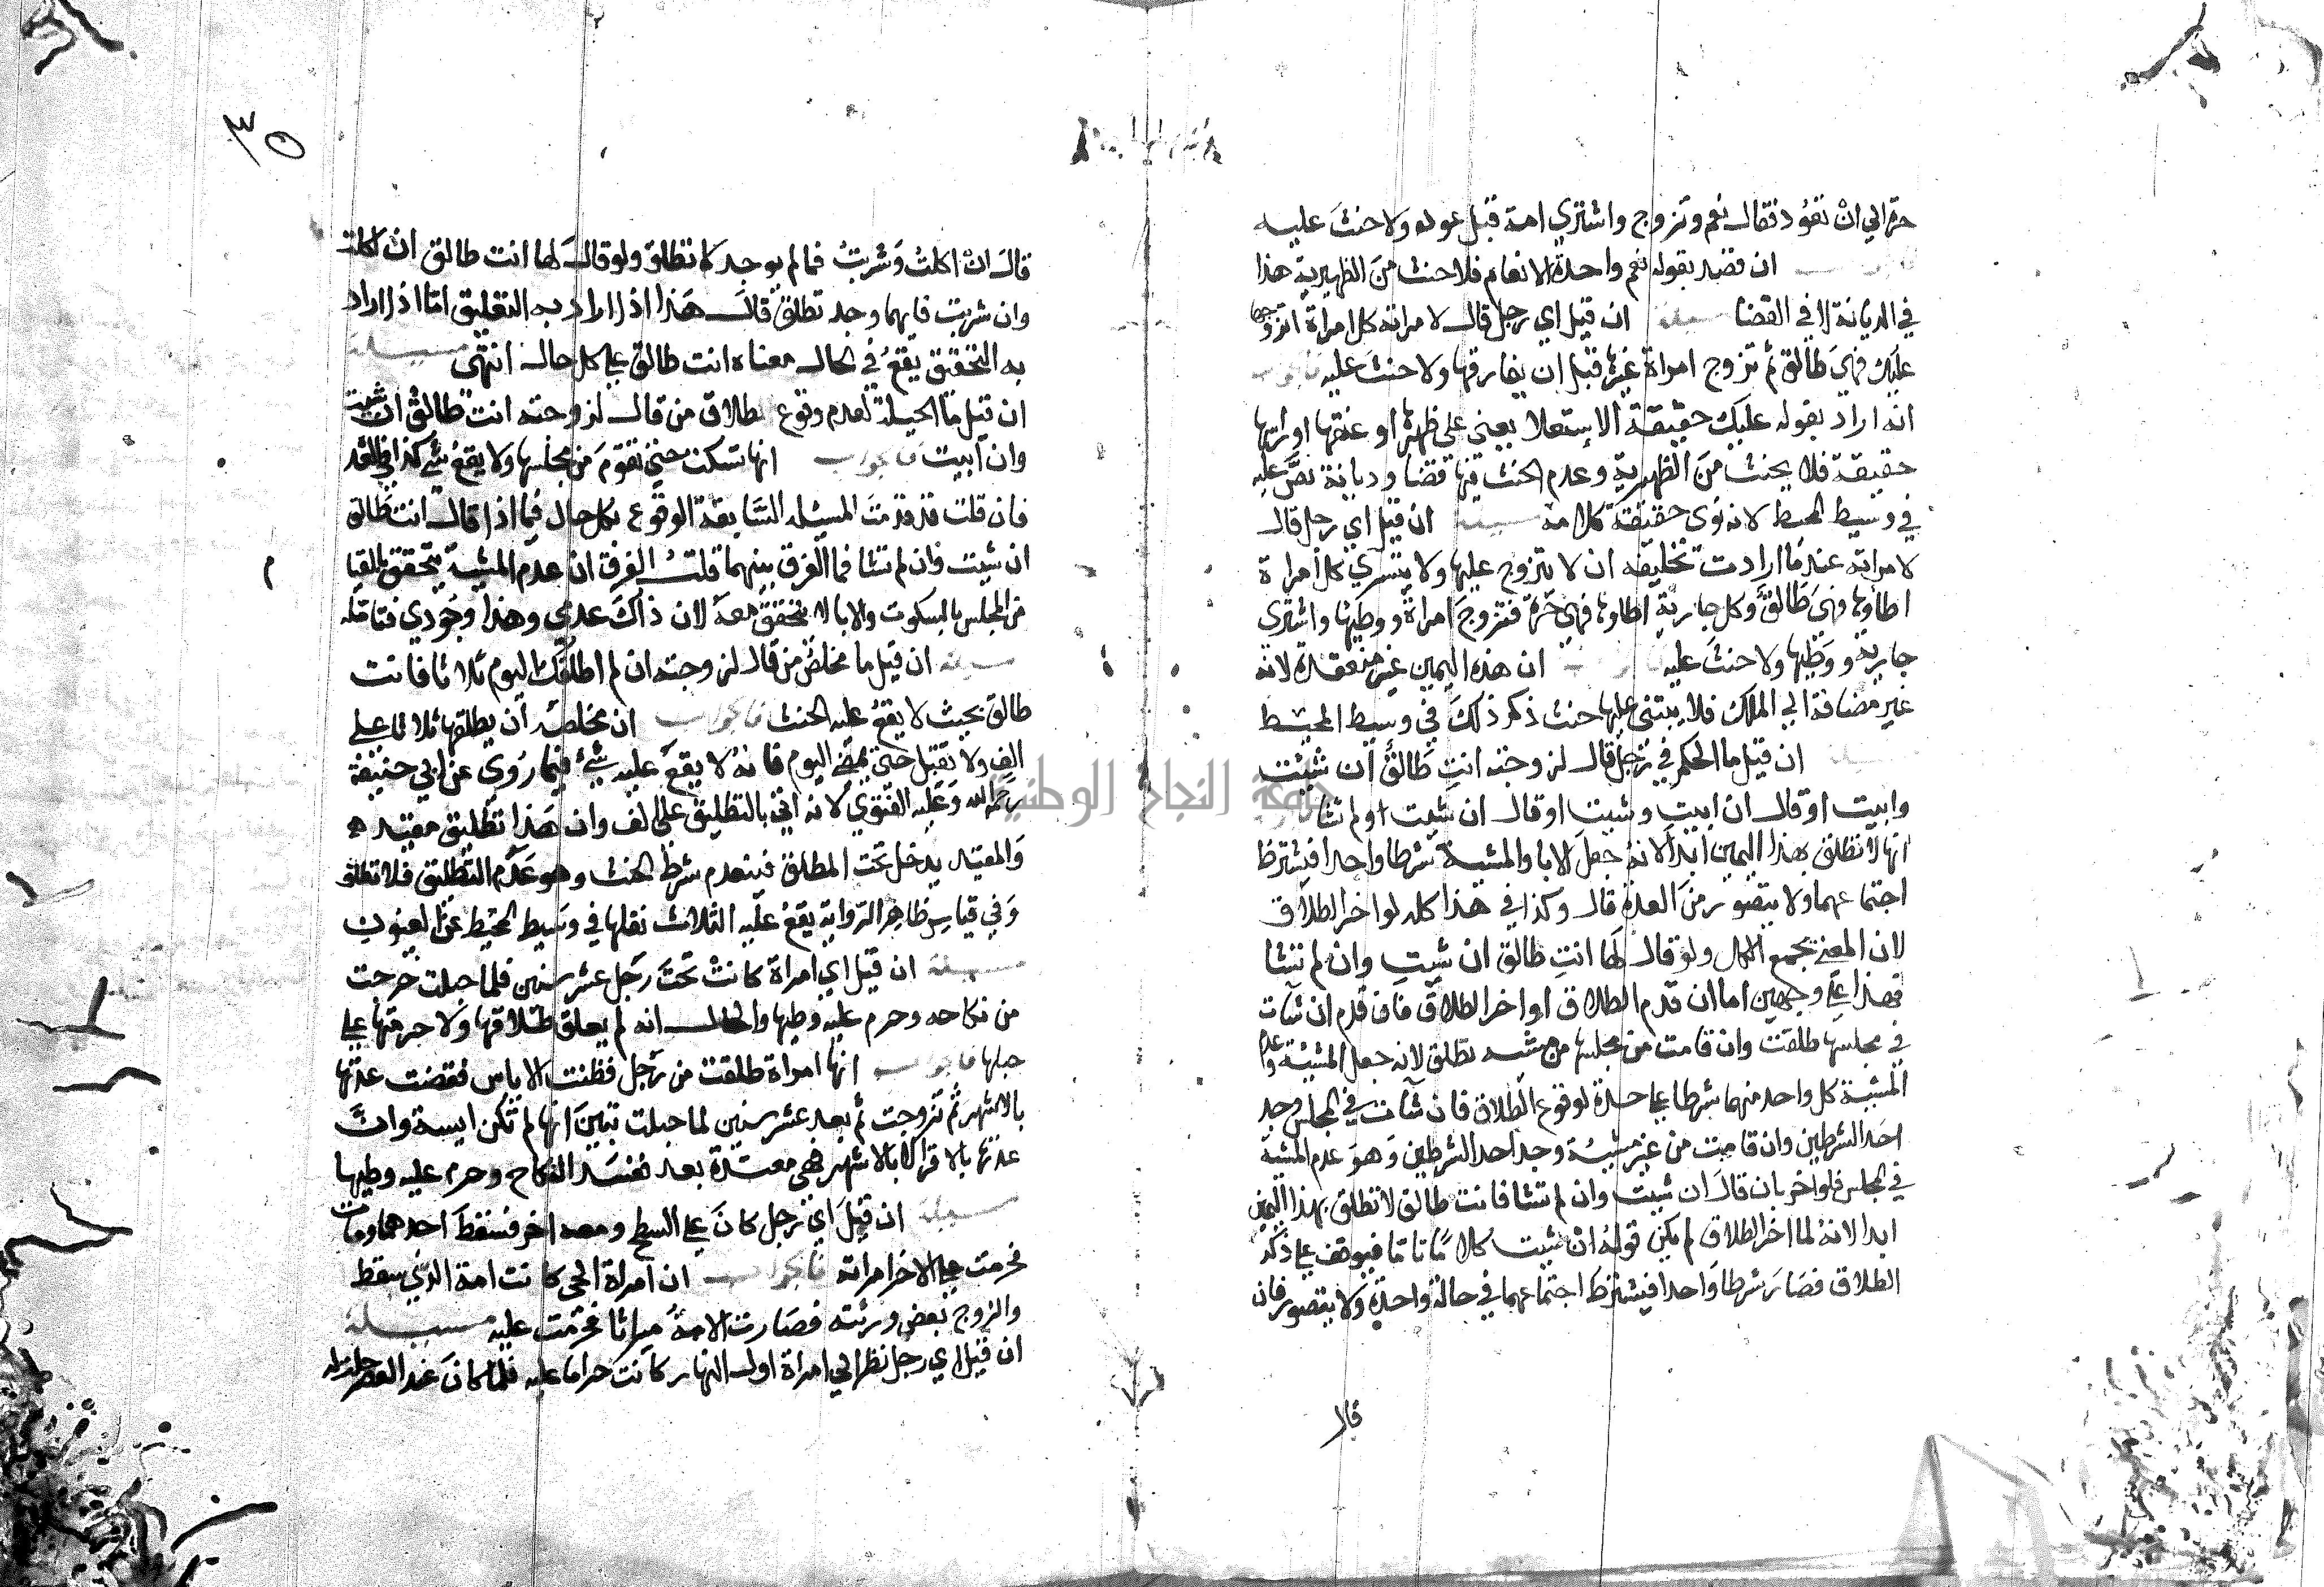 حرة الي ان تعود فقال نعم وتزوج واشتري امة قبل عوده ولا حنث عليه
ان قصد بقوله نعم واحدة الانعام فلا حنث من الظهيرية هذا
في الديانة لا في القضا مسئلة ان قيل اي رجل قال لامراته كل امراة اتزوجها
عليك فهي طالق ثم تزوج امراة غيرها قبل ان يفارقها ولا حنث عليه فالجواب
انه اراد بقوله عليك حقيقة الاستعلا يعني على ظهرها او عنقها او راسها
حقيقة فلا يحنث من الظهيرية وعدم الحنث فيها قضا وديانة نص عليه
في وسيط المحيط لانه نوى حقيقة كلامه مسئلة ان قيل اي رجل قال
لامراته عند ما ارادت تحليفه ان لا يتزوج عليها ولا يتسري كل امراة
اطاوها فهي طالق وكل جارية اطاوها فهي حرة فتزوج امراة ووطيها واشترى
جارية ووطيها ولا حنث عليه ان هذه اليمين غير منعقدة لانه
غير مضافة الي الملك فلا يبتني عليها حنث ذكر ذلك في وسيط المحيط
ان قيل ما الحكم في رجل قال لزوجته انت طالق ان شيت
وابيت او قال ان ابيت وشيت او قال ان شيت او لم تشا
انها لا تطلق بهذا اليمين ابدا لانه جعل الابا والمشية شرطا واحدا فيشترط
اجتماعهما ولا يتصور من العدة قال وكذا في هذا كله لو اخر الطلاق
لان المعني يجمع الكل ولو قال لها انت طالق ان شيت وان لم تشا
فهذا على وجهين اما ان قدم الطلاق او اخر الطلاق فان قدم ان شات
في مجلسها طلقت وان قامت من مجلسها من تطلق لانه جعل المشية وعدم
المشية كل واحد منهما شرطا على حدة لوقوع الطلاق فان شآت في المجلس وجد
احد الشرطين وان قامت من غير مشية وجد احد الشرطين وهو عدم المشية
في المجلس فلو اخر بان قال ان شيت وان لم تشا فانت طالق لا تطلق بهذا اليمين
ابدا لانه لما اخر الطلاق لم يكن قوله ان شيت كلاما تاما فيوقف على ذكر
الطلاق فصار شرطا واحدا فيشترط اجتماعهما في حالة واحدة ولا يتصور فان
قال
٣٥
قال ان اكلت وشربت فما لم يوجد لا تطلق ولو قال لها انت طالق ان اكلت
وان شربت فايهما وجد تطلق قال هذا اذا اراد به التعليق اما اذا اراد
به التحقيق يقع في الحال معناه انت طالق على كل حال انتهى مسئلة
ان قيل ما الحيلة لعدم وقوع طلاق من قال لزوجته انت طالق ان شيت
وان ابيت فالجواب انها تسكت حتى تقوم من مجلسها ولا يقع شي كذا في
فان قلت قد قدمت المسئلة السابقة الوقوع بكل حال فيما اذا قال انت طالق
ان شيت وان لم تشا فما الفرق بينهما قلت الفرق ان عدم المشية يتحقق بالقيا
م
من المجلس بالسكوت والابا لا يتحقق معه لان ذاك عدمي وهذا وجودي فتامله
مسئلة ان قيل ما مخلص من قال لزوجته ان لم اطلقك اليوم ثلاثا فانت
طالق بحيث لا يقع عليه الحنث فالجواب ان مخلصه ان يطلقها ثلاثا على
الف ولا تقبل حتى يمضي اليوم فانه لا يقع عليه شئ فيما روى عن ابي حنيفة
رحمه الله وعليه الفتوي لانه اتي بالتطليق على الف وان هذا تطليق مقيد
والمقيد يدخل تحت المطلق فينعدم شرط الحنث وهو عدم التطليق فلا تطلق
وفي قياس ظاهر الرواية يقع عليه الثلاث نقلها في وسيط المحيط عن العيون
مسئلة ان قيل اي امراة كانت تحت رجل عشر سنين فلما حبلت خرجت
من نكاحه وحرم عليه وطيها والحال انه لم يعلق طلاقها ولا حرمتها على
حبلها فالجواب انها امراة طلقت من رجل فظنت الاياس فقضت عدتها
بالاشهر ثم تزوجت ثم بعد عشر سنين لما حبلت تبين انها لم تكن ايسة وان
عدتها بالاقرا لا بالاشهر فهي معتدة بعد ففسد النكاح وحرم عليه وطيها
مسئلة ان قيل اي رجل كان على السطح ومعه اخر فسقط احدهما ومات
فحرمت على الاخر امراته فالجواب ان امراة الحي كانت امة الذي سقط
والزوج بعض ورثته فصارت الامة ميراثا فحرمت عليه مسئلة
ان قيل اي رجل نظر الي امراة اول النهار كانت حراما عليه فلما كان عند العصر حلت له
جامعة النجاح الوطنية